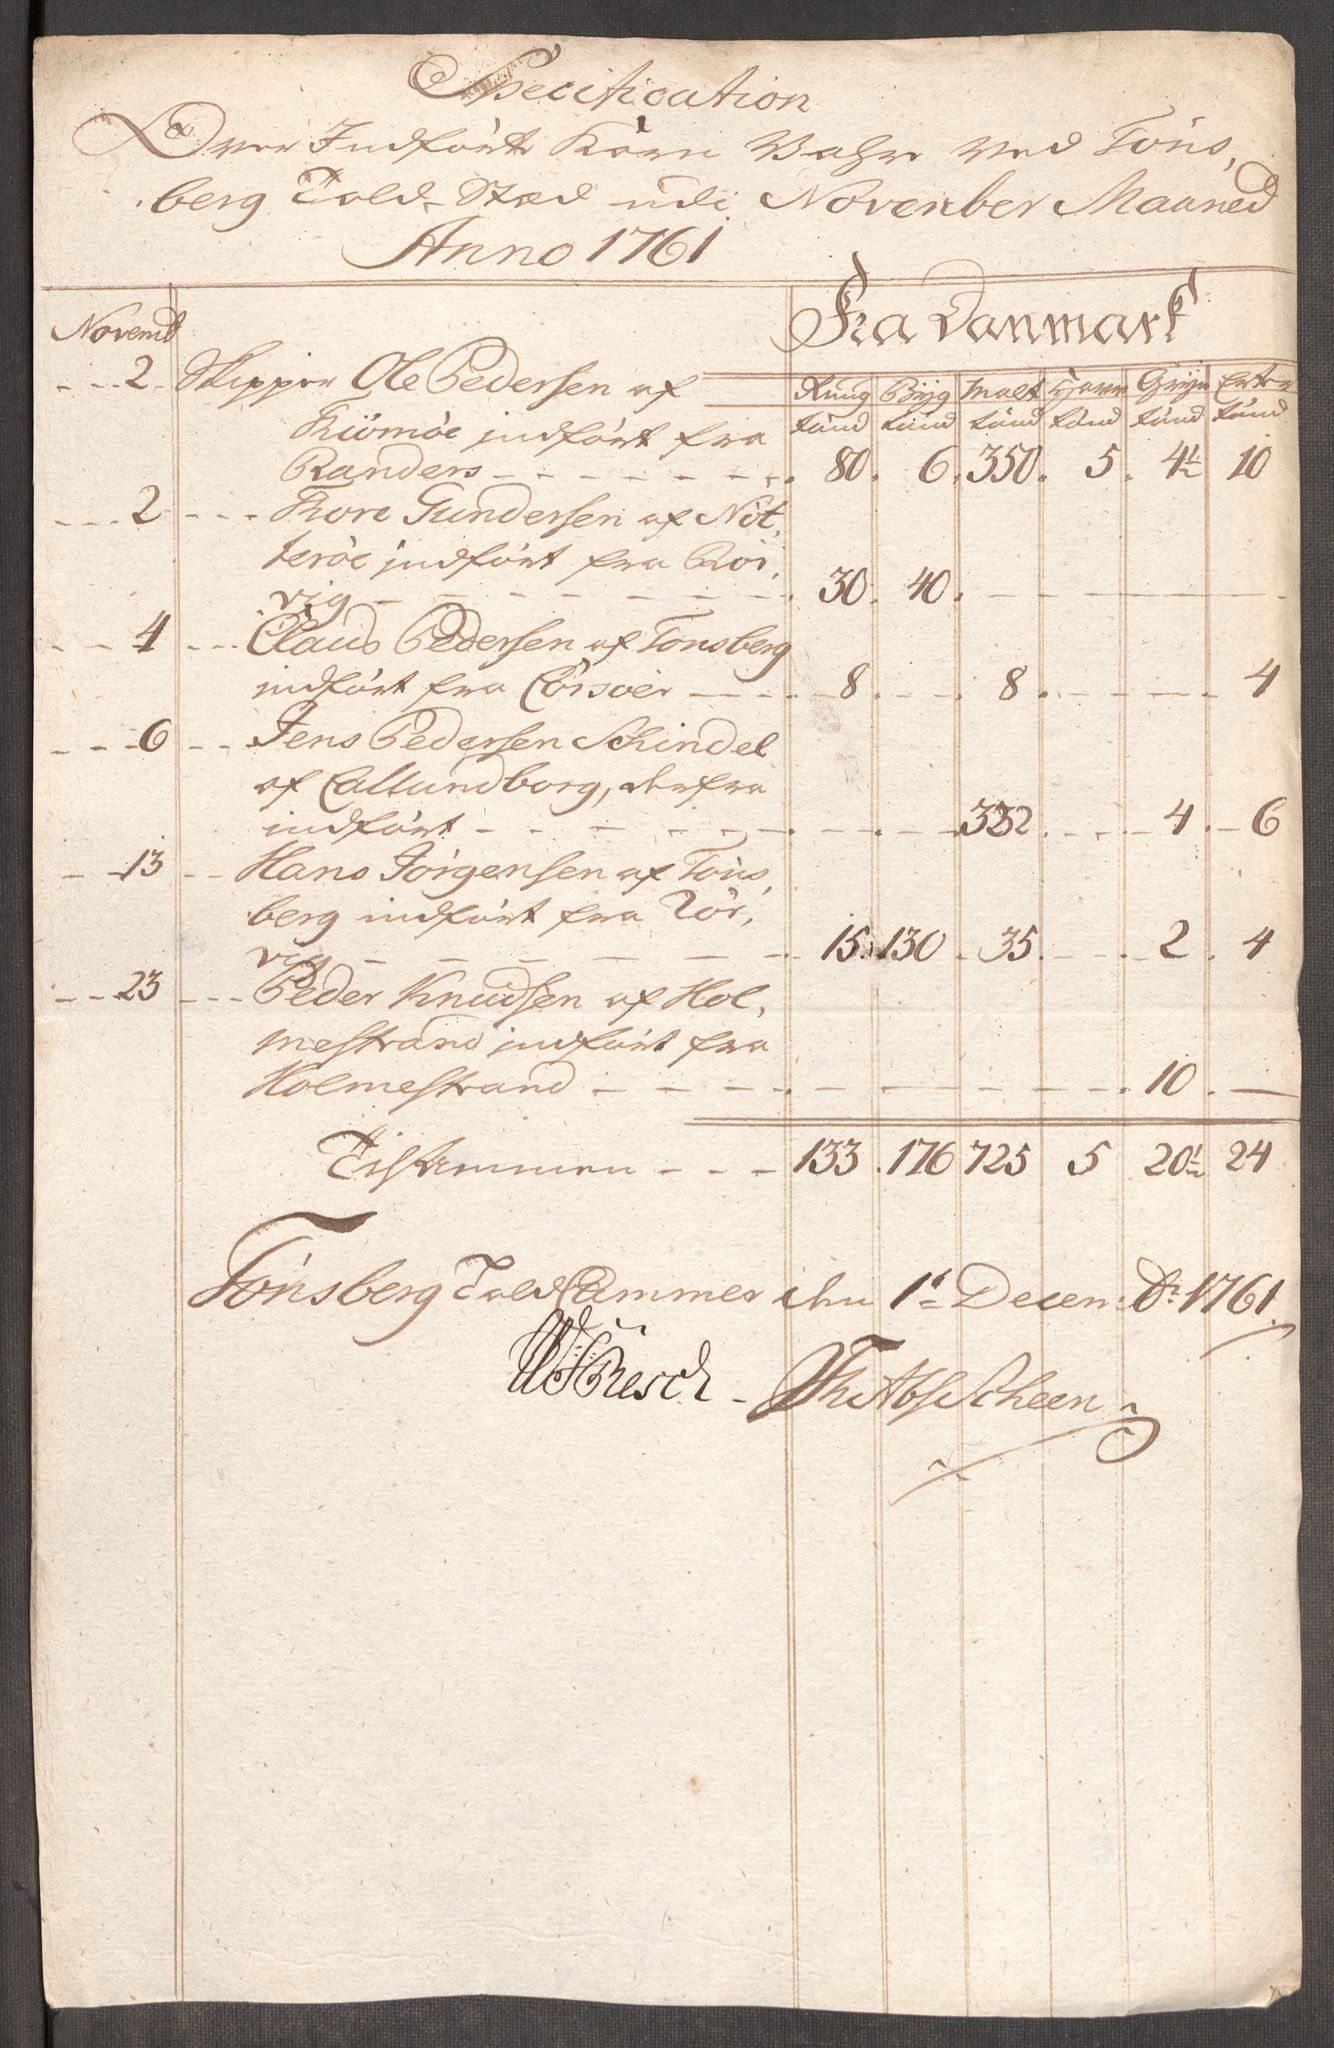 Specification
Over Indförte Korn Vahre ved Töns,
berg Told-Stæd udi November Maaned
Anno 1761
Fra Danmark
Novemb
Rug Byg Malt Havre Gryn Erter
tünd tünd tünd tünd tünd tünd
2 Skipper Ole Pedersen af
Tiömöe indfört fra
Randers 80. 6. 350. 5. 4½ 10
2 Thore Gundersen af Nöt,
teröe indfört fra Rör,
vig 30. 40.
4 Claus Pedersen af Tonsberg
indfört fra Corsöer 8. 8. 4
6 Jens Pedersen Schindel
af Callundborg, derfra
indfört 332 4. 6
13 Hans Jörgensen af Töns,
berg indfört fra Rör,
vig 15. 130. 35. 2. 4
23 Peder Knudsen af Hol,
mestrand indfört fra
Holmestrand 10.
Tilsammen 133. 176 725 5 20½ 24
Tönsberg Told Cammer den 1te Decembr 1761.
Resch Scheen